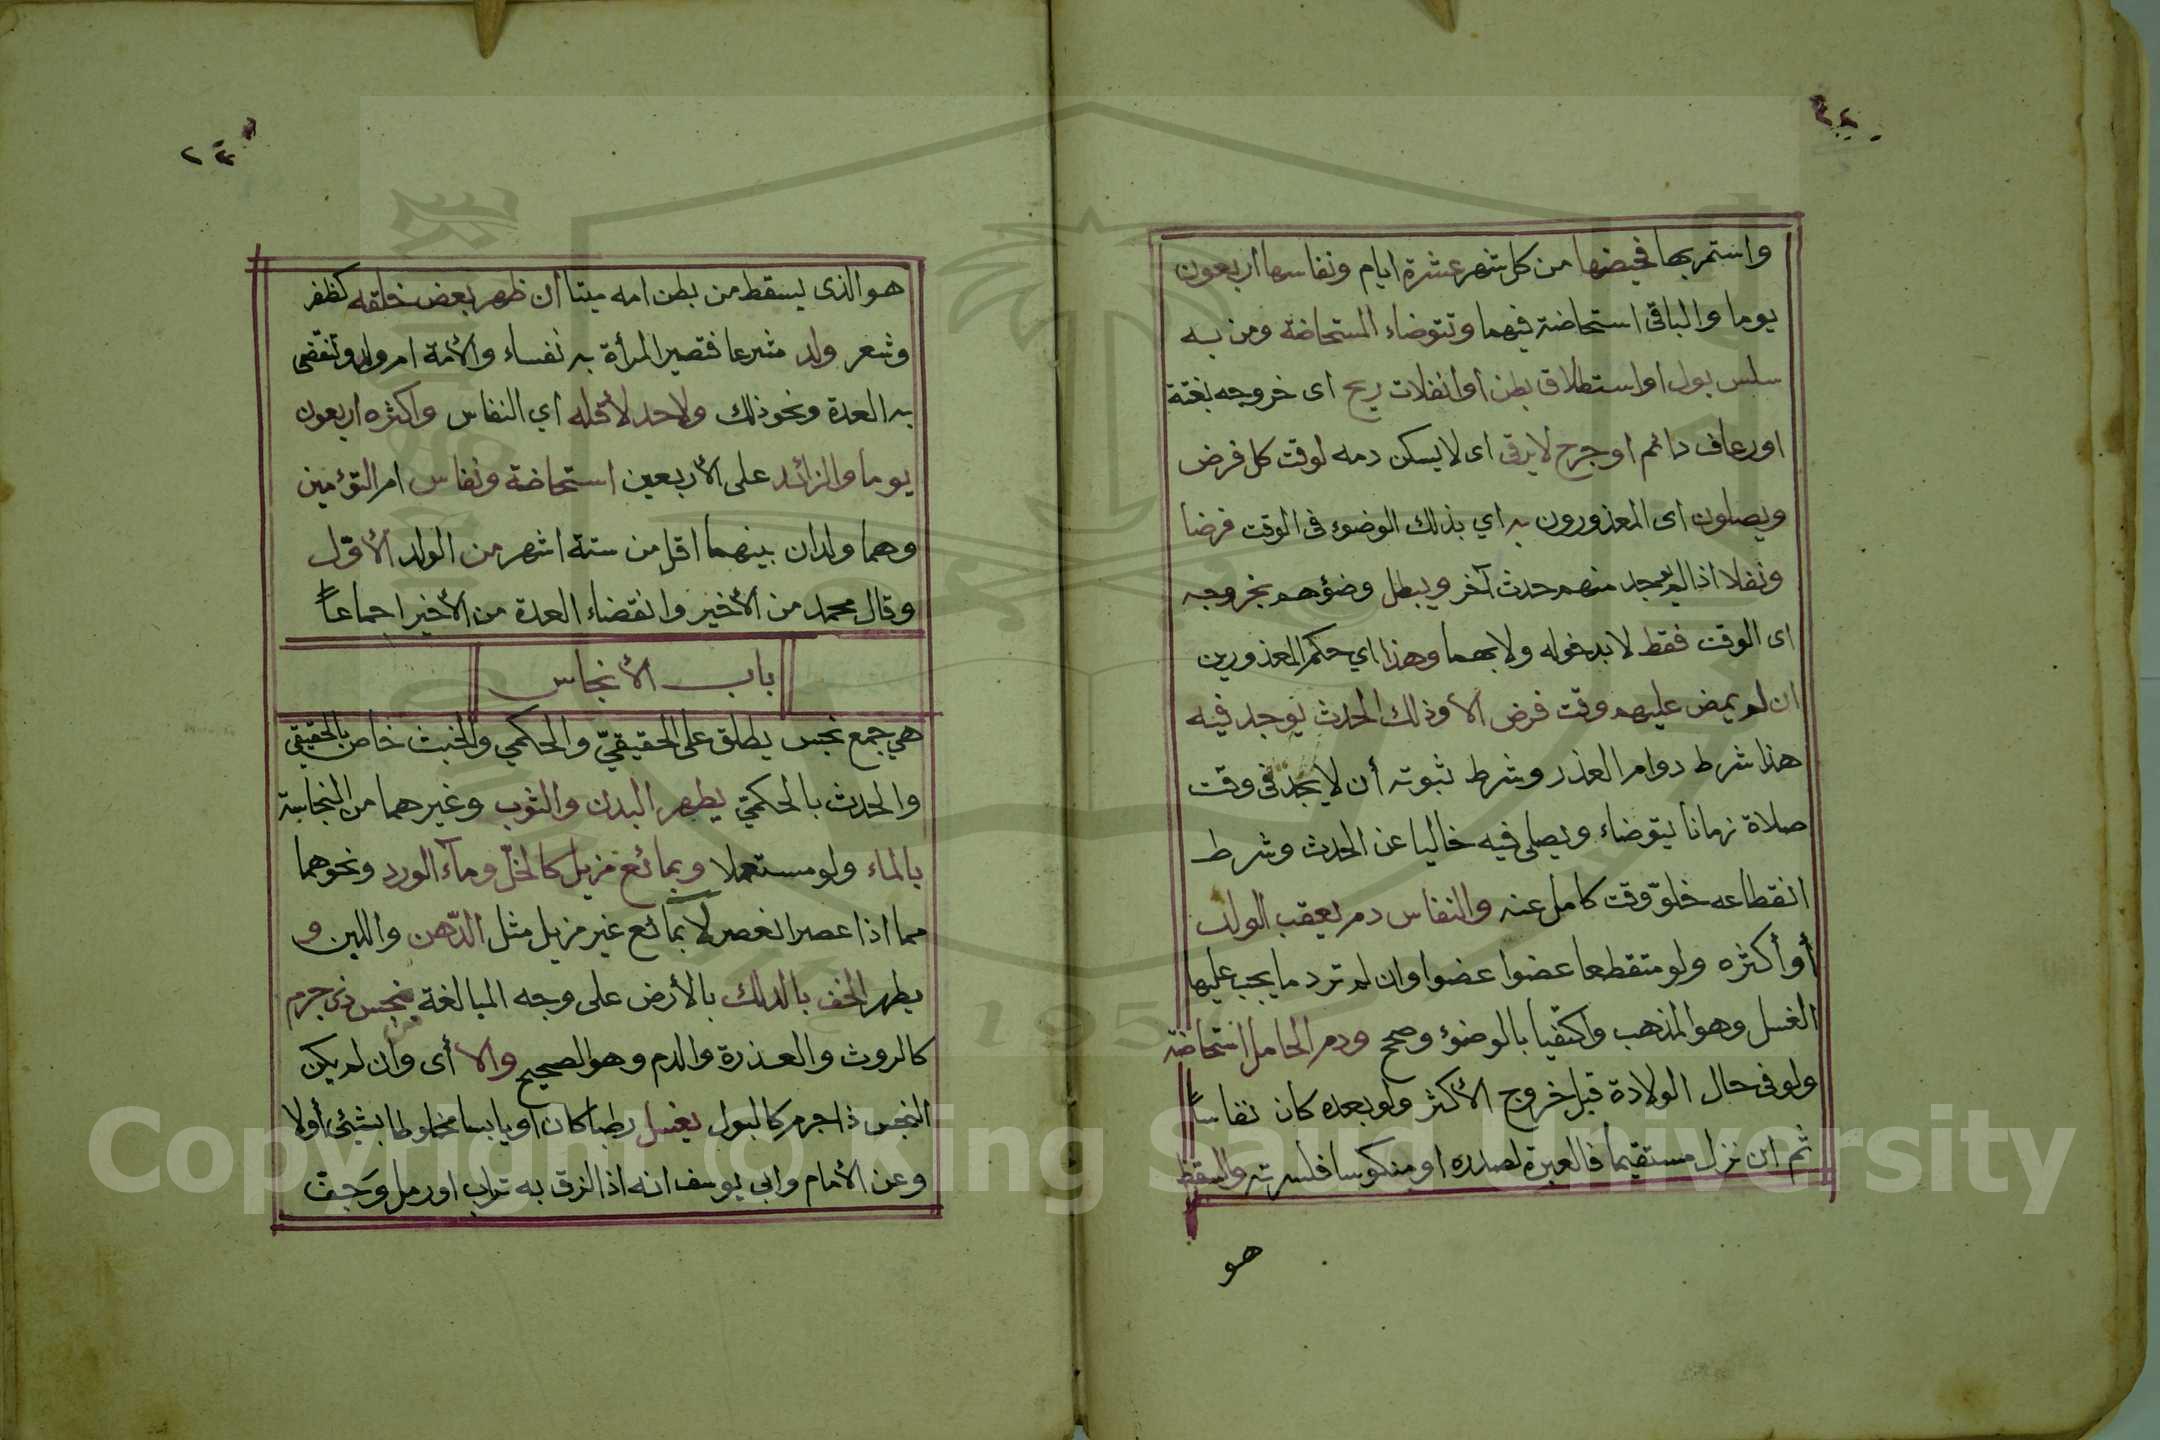 واستمر بها فحيضها من كل شهر عشرة ايام ونفاسها أربعون
يوما والباقى استحاضة فيهما وتتوضاء المستحاضة ومن به
سلس بول او استطلاق بطن أو انفلات ريح اى خروجه بغتة
او رعاف دائم او جرح لا يرقى اى لا يسكن دمه لوقت كل فرض
ويصلون اى المعذورون به اي بذلك الوضوء فى الوقت فرضا
ونفلا اذا لم يوجد منهم حدث آخر ويبطل وضؤهم بخروجه
اى الوقت فقط لا بدخوله ولا بهما وهذا اي حكم المعذورين
ان لم يمض عليهم وقت فرض الا وذلك الحدث يوجد فيه
هذا شرط دوام العذر وشرط ثبوته أن لا يجد فى وقت
صلاة زمانا يتوضاء ويصلى فيه خاليا عن الحدث وشرط
انقطاعه خلوّ وقت كامل عنه والنفاس دم يعقب الولد
أو أكثره ولو متقطعا عضوا عضوا وان لم ترد ما يجب عليها
الغسل وهو المذهب واكتفيا بالوضوء وصحح ودم الحامل استحاضة
ولو فى حال الولادة قبل خروج الأكثر ولو بعده كان نفاسا
ثم ان نزل مستقيما فالعبرة لصدره او منكوسا فلسرته والسقط
هو
هو الذى يسقط من بطن امه ميتا ان ظهر بعض خلقه كظفر
وشعر ولد شرعا فتصير المرأة به نفساء والأمة ام ولد وتنقضى
به العدة ونحو ذلك ولا حد لأقله اي النفاس واكثره اربعون
يوما والزائد على الأربعين استحاضة ونفاس ام التؤمين
وهما ولدان بينهما اقل من ستة اشهر من الولد الأوّل
وقال محمد من الأخير وانقضاء العدة من الأخير اجماعاً
باب الأنجاس
هي جمع نجس يطلق على الحقيقيّ والحكمي والخبث خاص بالحقيقي
والحدث بالحكميّ يطهر البدن والثوب وغيرهما من النجاسة
بالماء ولو مستعملا وبمائع مزيل كالخلّ ومآء الورد ونحوهما
مما اذا عصر انعصر لا بمائع غير مزيل مثل الدّهن واللبن و
يطهر الخف بالدلك بالأرض على وجه المبالغة بنجس ذى جرم
كالروث والعذرة والدم وهو الصحيح والا أى وان لم يكن
النجس ذا جرم كالبول يغسل رطبا كان او يابسا مخلوطا بشئ أولا
وعن الأمام وابى يوسف انه اذا لزق به تراب او رمل وَجف